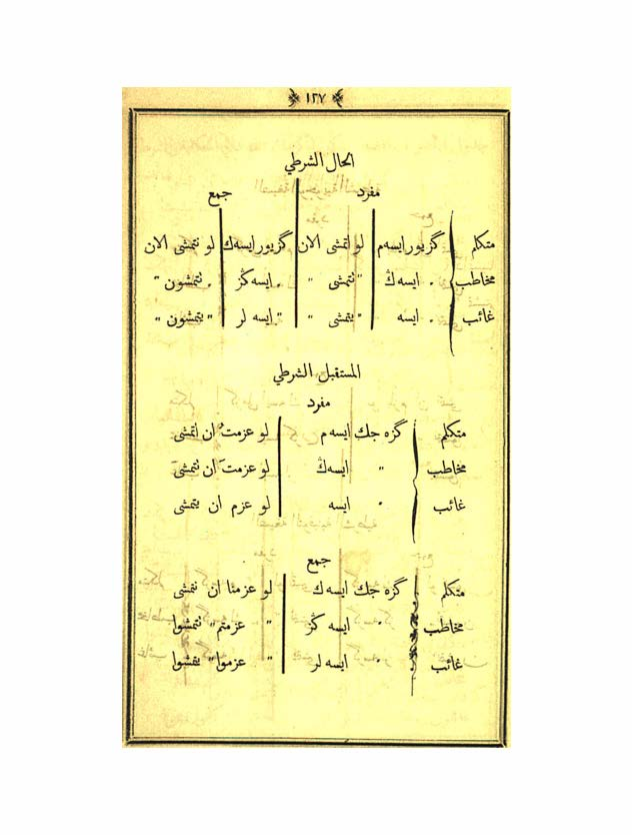 ١٢٧
الحال الشرطي
مفرد جمع
متكلم گزيور ايسه م لو اتمشى الان گزيور ايسه ك لو نتمشى الان
مخاطب . ايسه ڭ " تتمشى " . ايسه ڭز . تتمشون "
غائب . ايسه " يتمشى " " ايسه لر " يتمشون "
المستقبل الشرطي
مفرد
متكلم گزه جك ايسه م لو عزمتُ ان اتمشى
مخاطب " ايسه ڭ لو عزمتَ ان تتمشى
غائب " ايسه لو عزم ان يتمشى
جمع
متكلم گزه جك ايسه ك لو عزمنا ان نتمشى
مخاطب " ايسه ڭز " عزمتم " تتمشوا
غائب " ايسه لر " عزموا " يتمشوا